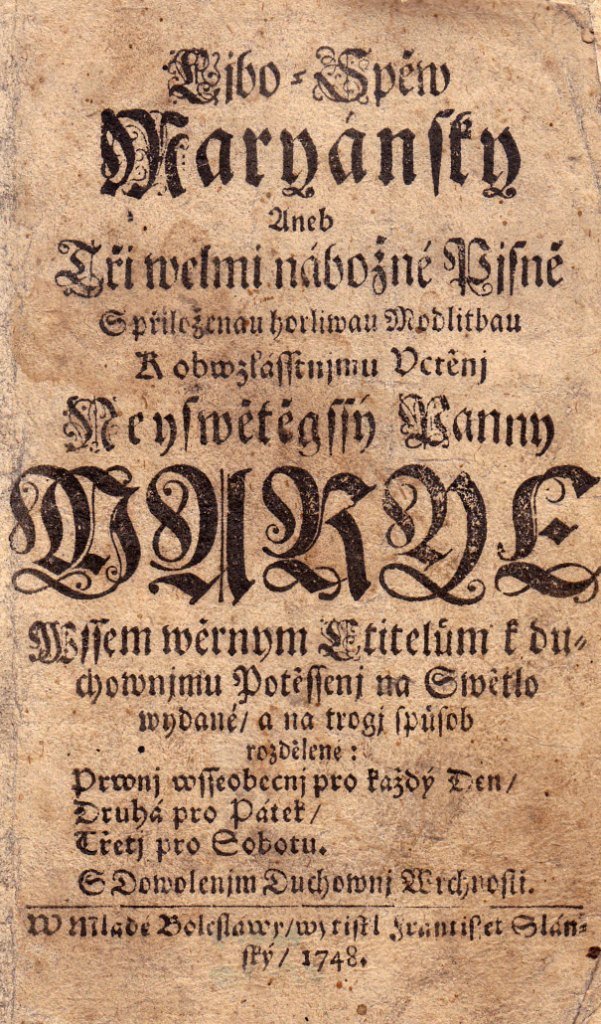 Ljbo-Spěw
Maryánsky
Aneb
Tři welmi nábožné Pjsně
S přiloženau horliwau Modlitbau
K obwzlásstnjmu Vctěnj
Neyswětěgssý Panny
MARYE
Wssem wěrnym Ctitelům k du-
chownjmu Potěssenj na Swětlo
wydané/ a na trogj spůsob
rozdělene:
Prwnj wsseobecnj pro každý Den/
Druhá pro Pátek/
Třetj pro Sobotu.
S Dowolenjm Duchownj Wrchnosti.
W Mladé Boleslawy/ wytiskl Frantissek Slán-
ský/ 1748.